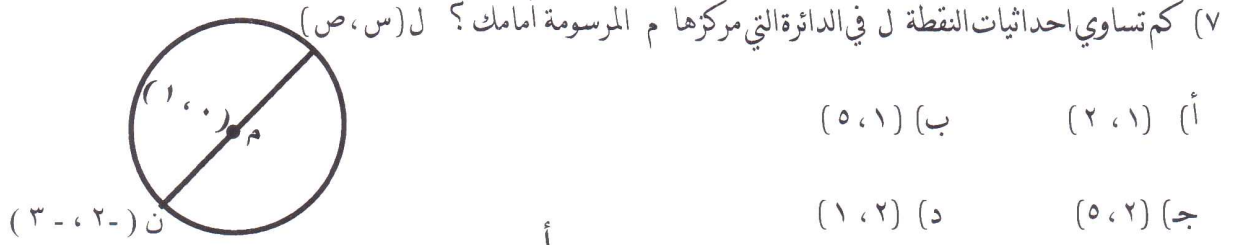 ٧) كم تساوي احداثيات النقطة ل في الدائرة التي مركزها م المرسومة أمامك ؟ ل (س ، ص)
(٠ ، ١)
م
أ) (١ ، ٢) ب) (١ ، ٥)
جـ) (٢ ، ٥) د) (٢ ، ١)
ن (-٢ ، -٣)
أ